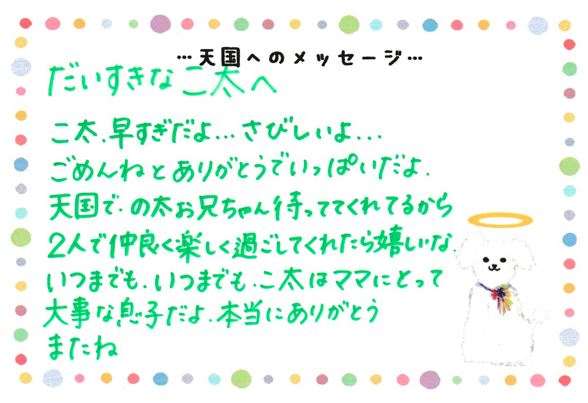 …天国へのメッセージ…
だいすきなこ太へ
こ太、早すぎだよ…さびしいよ…
ごめんねとありがとうでいっぱいだよ、
天国で、の太お兄ちゃん待っててくれてるから
2人で仲良く楽しく過ごしてくれたら嬉しいな、
いつまでも、いつまでも、こ太はママにとって
大事な息子だよ、本当にありがとう
またね